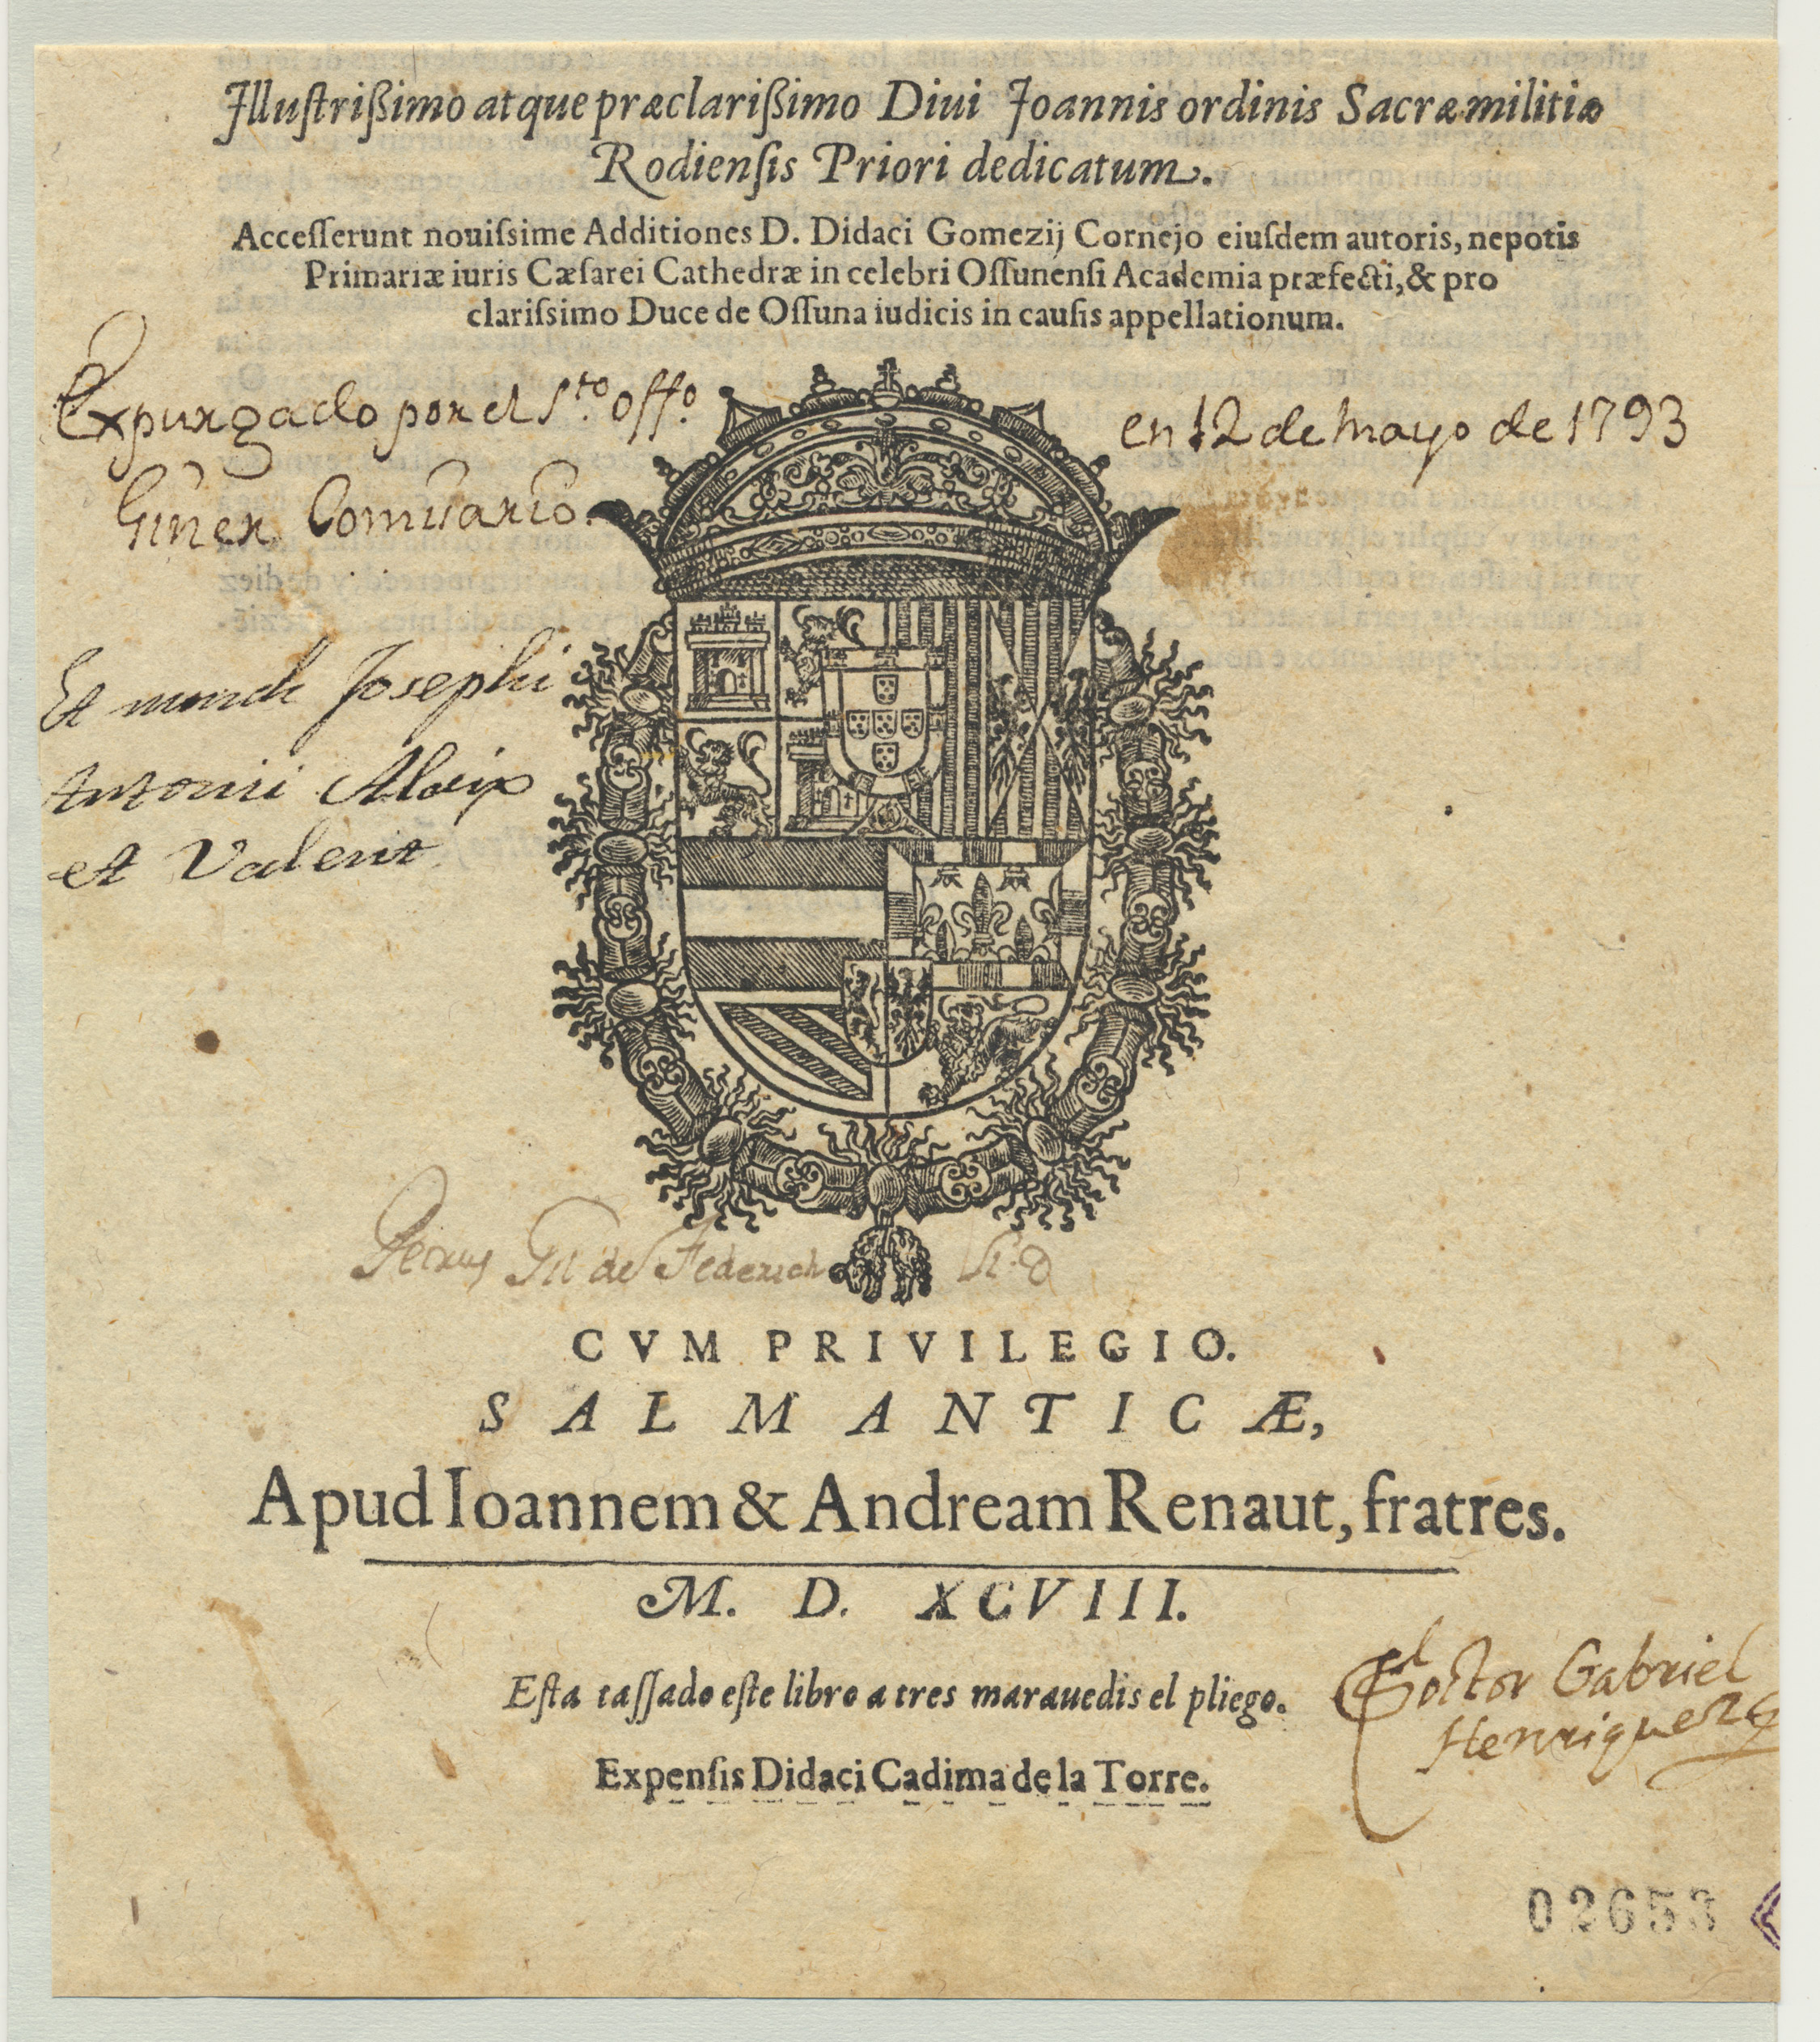 Illustrißimo atque præclarißimo Diui Joannis ordinis Sacræ militiæ
Rodiensis Priori dedicatum.
Accesserunt nouissime Additiones D. Didaci Gomezij Cornejo eiusdem autoris, nepotis
Primariæ iuris Cæsarei Cathedræ in celebri Ossunensi Academia præfecti, & pro
clarissimo Duce de Ossuna iudicis in causis appellationum.
Expurgado por el Sto. Offo. en 12 de mayo de 1793
Giner Comisario.
Et Josephi
Antonii Aloix
et Valent
Petrus Gil de Federich
CVM PRIVILEGIO.
SALMANTICÆ,
Apud Ioannem & Andream Renaut, fratres.
M. D. XCVIII.
Esta tassado este libro a tres marauedis el pliego.
El Doctor Gabriel
Henriquez
Expensis Didaci Cadima de la Torre.
02653